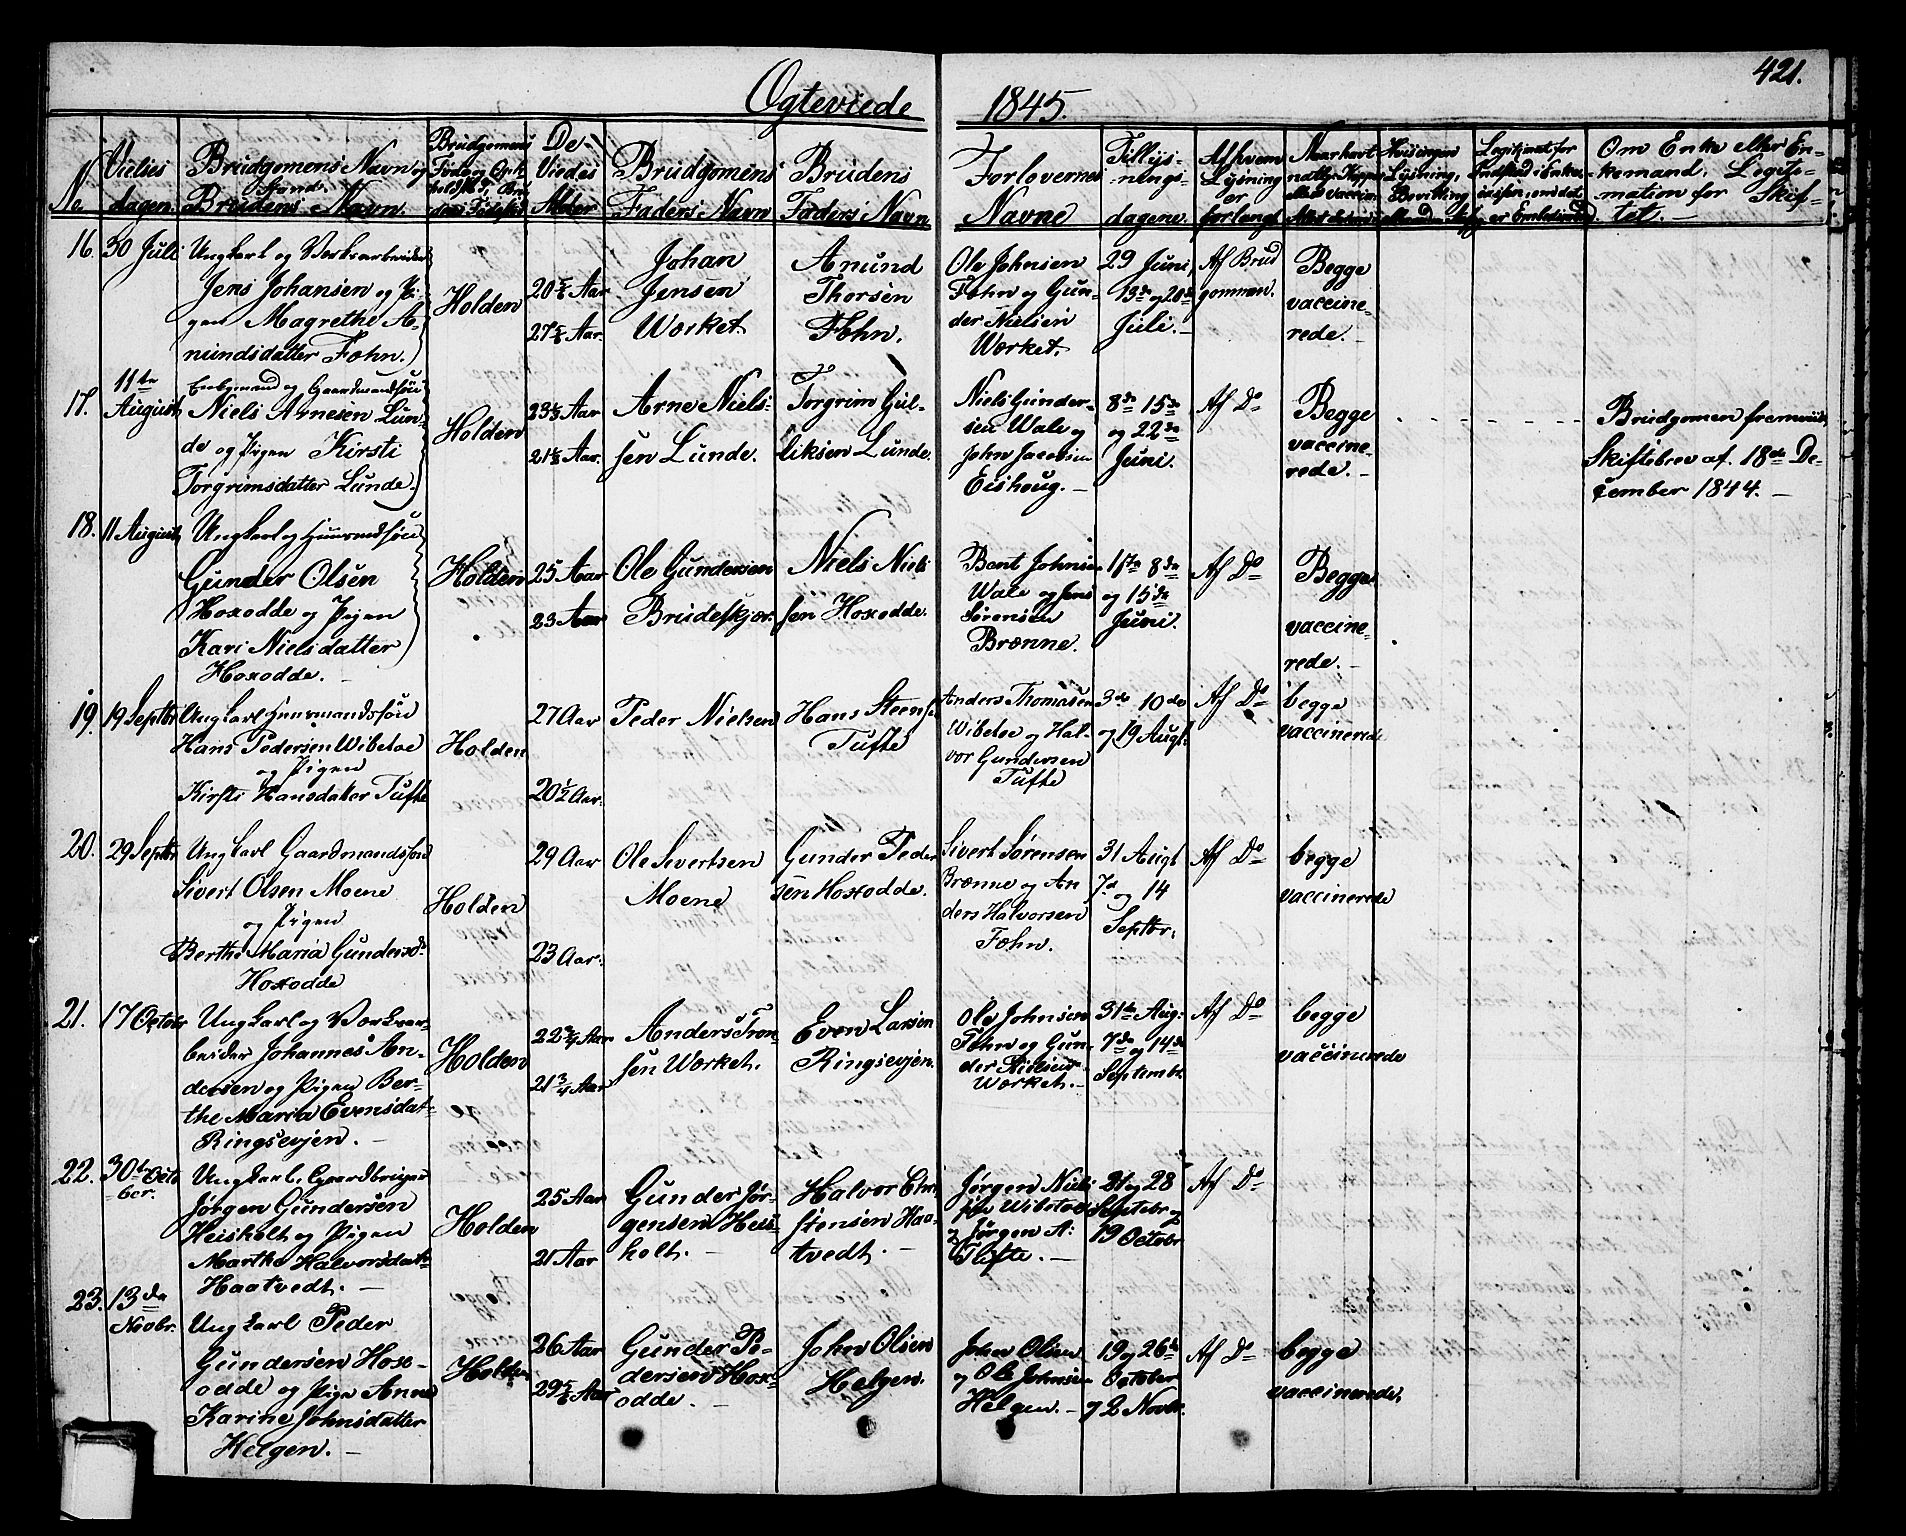 421.
Ogteviede 1845.
No
Vielses dagen.
Brudgomens Navn og Stand. Brudens Navn.
Brudgomens Fødested, Brudens Fødested
De Viedes Alder
Brudgomens Faders Navn
Brudens Faders Navn
Forlovernes Navne
Tillysnings-dagene.
Af hvem Lysning er forlangt
Om Enke eller Enkemand. Legitimation for Skiftet. —
16. 30 Juli
Ungkarl og Værksarbeider
Jens Johansen og Pi-
gen Magrethe A-
mundsdatter Fæhn.
Holden
20 5/6 Aar
27 5/6 Aar.
Johan
Jensen
Værket
Amund
Thorsen
Fæhn.
Ole Johnsen
Fæhn og Gun-
der Nielsen
Værket.
29 Juni,
13de og 20de
Juli. —
Af Brud
gommen.
Begge
vaccine-
rede. —
17. 11te August
Enkemand og Gaardmandssøn
Niels Arnesen Lun-
de og Pigen Kirsti
Torgrimsdatter Lunde.
Holden
Aar
Aar.
Arne Niel-
sen Lunde.
Torgrim Gul-
liksen Lunde.
Niels Gunder-
sen Wale og
John Jacobsen
Eishoug. —
8de 15de
og 22de
Juni.
Af Do
Begge
vaccine-
rede. —
Brudgomen fremviiste
Skiftebrev af 18de De-
cember 1844. —
18. 11 August
Ungkarl og Huusmandssøn
Gunder Olsen
Hoxodde og Pigen
Kari Nielsdatter
Hoxodde. —
Holden
25 Aar
23 Aar
Ole Gundersen
Brudeskjær.
Niels Niel-
sen Hoxodde.
Bent Johnsen
Wale og Jens
Sørensen
Brænne.
1ste 8de
og 15de
Juni.
Af Do
Begge
vaccine-
rede. —
19. 19 Septbr
Ungkarl Huusmandssøn
Hans Pedersen Wibetoe
og Pigen
Kirsti Hansdatter Tufte
Holden
27 Aar
20 1/2 Aar.
Peder Nielsen
Hans Steens.
Tufte
Anders Thomasen
Wibetoe og Hal-
vor Gundersen
Tufte
3de 10de
og 19 Augt.
Af Do
begge
vaccinerede
20. 29 Septbr
Ungkarl Gaardmandssøn
Sivert Olsen Moene
og Pigen
Berthe Maria Gundersd.
Hoxodde
Holden
29 Aar
23 Aar.
Ole Sivertsen
Moene
Gunder Peder
sen Hoxodde.
Sivert Sørensen
Brænne og An
ders Halvorsen
Fæhn.
31 Augt
7de og 14
Septbr.
Af Do
begge
vaccinerede
21. 17 Octobr
Ungkarl og Værksar-
beider Johannes An-
dersen og Pigen Ber-
the Maria Evensdat-
Ringsevjen. —
Holden
22 3/4 Aar
21 3/4 Aar
Anders Tron-
sen Værket.
Even Larsen
Ringsevjen.
Ole Johnsen
Fæhn og Gun-
der Nielsen
Værket. —
31te Aug.
7de og 14de
Septembr.
Af Do
begge
vaccinerede
22. 30te Octo
ber.
Ungkarl, Gaardbruger
Jørgen Gundersen
Heisholt og Pigen
Marthe Halvorsdatt
Haatvedt. —
Holden
25 Aar
21 Aar
Gunder Jør-
gensen Heis-
holt. —
Halvor Chri
stensen Haa-
tvedt. —
Jørgen Niel
sen Wibetoe
og Jørgen A:
Tufte. —
21 og 28
Septebr og
19 Octobr
Af Do
23. 13de
Novbr.
Ungkarl Peder
Gundersen Hox-
odde og Pige Anne
Karine Johnsdatter
Helgen. —
Holden
26 Aar
29 5/6 Aar
Gunder Pe-
dersen Hox-
odde. —
John Olsen
Helgen.
John Olsen
og Ole Johnsen
Helgen. —
19 og 26de
October
og 2 Novbr.
Af Do
begge
vaccinerede.